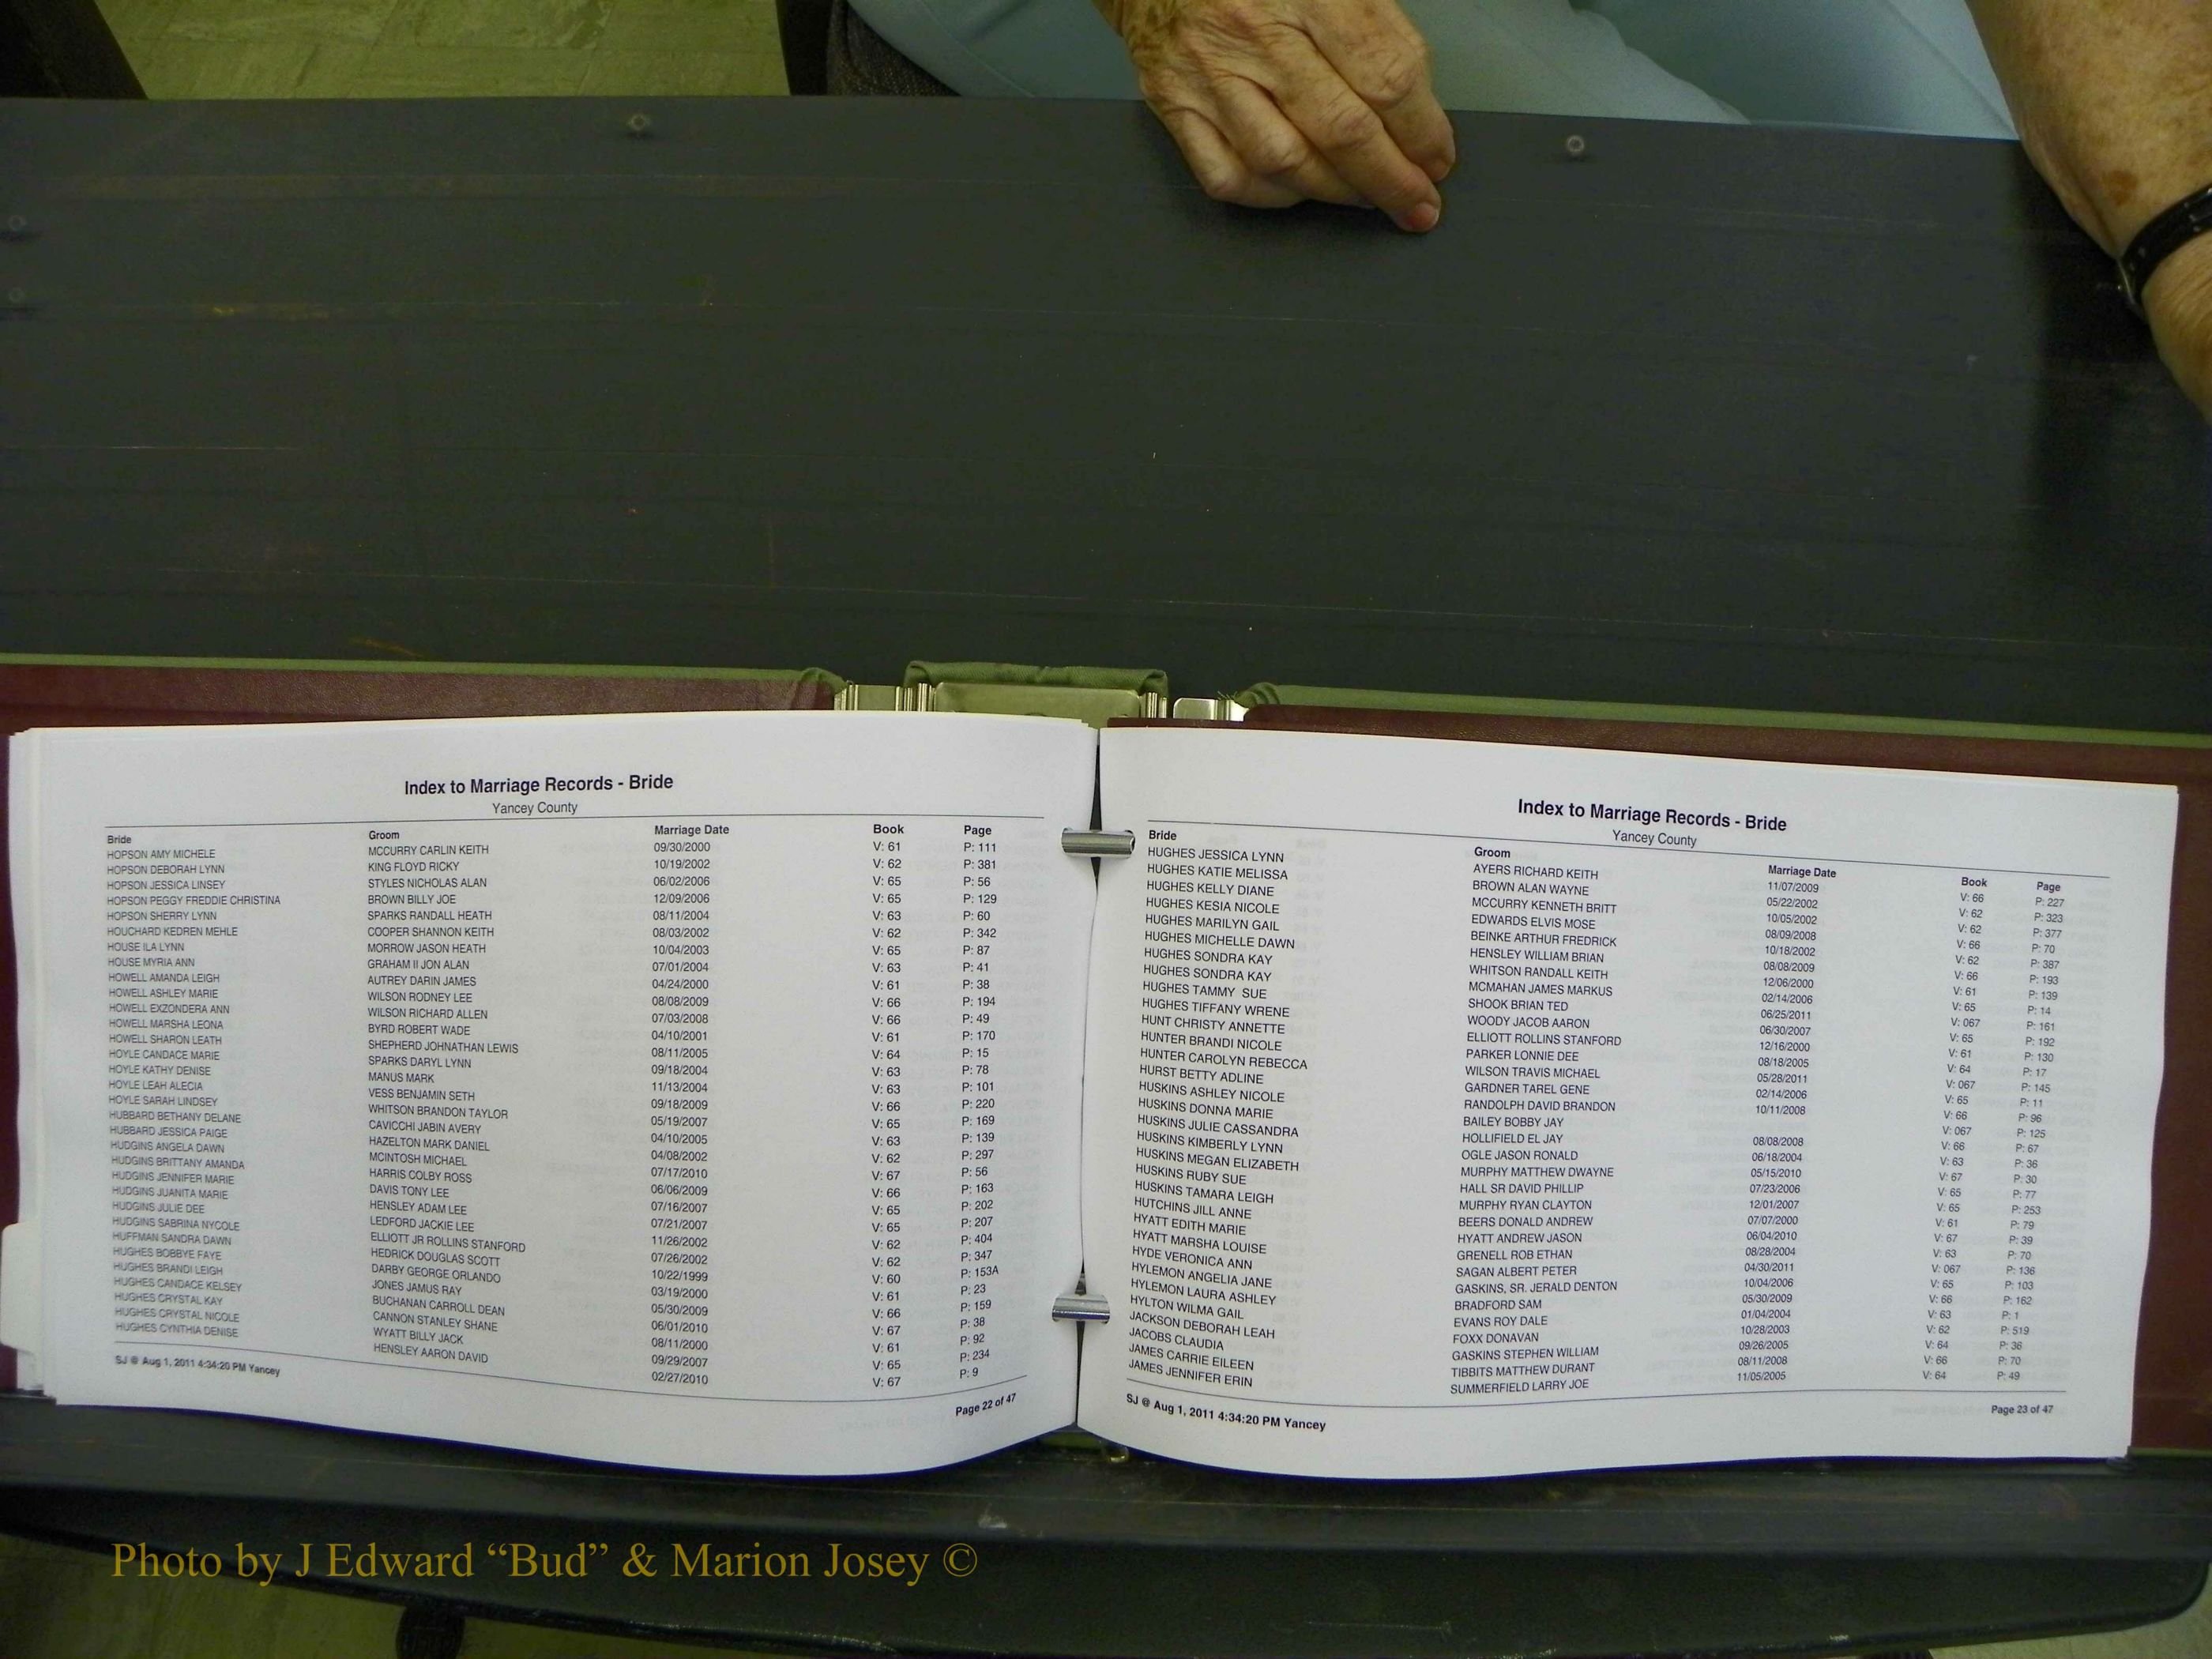 Index to Marriage Records - Bride
Yancey County
Bride Groom Marriage Date Book Page
HOPSON AMY MICHELE MCCURRY CARLIN KEITH 09/30/2000 V: 61 P: 111
HOPSON DEBORAH LYNN KING FLOYD RICKY 10/19/2002 V: 62 P: 381
HOPSON JESSICA LINSEY STYLES NICHOLAS ALAN 06/02/2006 V: 65 P: 56
HOPSON PEGGY FREDDIE CHRISTINA BROWN BILLY JOE 12/09/2006 V: 65 P: 129
HOPSON SHERRY LYNN SPARKS RANDALL HEATH 08/11/2004 V: 63 P: 60
HOUCHARD KEDREN MEHLE COOPER SHANNON KEITH 08/03/2002 V: 62 P: 342
HOUSE ILA LYNN MORROW JASON HEATH 10/04/2003 V: 65 P: 87
HOUSE MYRIA ANN GRAHAM II JON ALAN 07/01/2004 V: 63 P: 41
HOWELL AMANDA LEIGH AUTREY DARIN JAMES 04/24/2000 V: 61 P: 38
HOWELL ASHLEY MARIE WILSON RODNEY LEE 08/08/2009 V: 66 P: 194
HOWELL EXZONDERA ANN WILSON RICHARD ALLEN 07/03/2008 V: 66 P: 49
HOWELL MARSHA LEONA BYRD ROBERT WADE 04/10/2001 V: 61 P: 170
HOWELL SHARON LEATH SHEPHERD JOHNATHAN LEWIS 08/11/2005 V: 64 P: 15
HOYLE CANDACE MARIE SPARKS DARYL LYNN 09/18/2004 V: 63 P: 78
HOYLE KATHY DENISE MANUS MARK 11/13/2004 V: 63 P: 101
HOYLE LEAH ALECIA VESS BENJAMIN SETH 09/18/2009 V: 66 P: 220
HOYLE SARAH LINDSEY WHITSON BRANDON TAYLOR 05/19/2007 V: 65 P: 169
HUBBARD BETHANY DELANE CAVICCHI JABIN AVERY 04/10/2005 V: 63 P: 139
HUBBARD JESSICA PAIGE HAZELTON MARK DANIEL 04/08/2002 V: 62 P: 297
HUDGINS ANGELA DAWN MCINTOSH MICHAEL 07/17/2010 V: 67 P: 56
HUDGINS BRITTANY AMANDA HARRIS COLBY ROSS 06/06/2009 V: 66 P: 163
HUDGINS JENNIFER MARIE DAVIS TONY LEE 07/16/2007 V: 65 P: 202
HUDGINS JUANITA MARIE HENSLEY ADAM LEE 07/21/2007 V: 65 P: 207
HUDGINS JULIE DEE LEDFORD JACKIE LEE 11/26/2002 V: 62 P: 404
HUDGINS SABRINA NYCOLE ELLIOTT JR ROLLINS STANFORD 07/26/2002 V: 62 P: 347
HUFFMAN SANDRA DAWN HEDRICK DOUGLAS SCOTT 10/22/1999 V: 60 P: 153A
HUGHES BOBBYE FAYE DARBY GEORGE ORLANDO 03/19/2000 V: 61 P: 23
HUGHES BRANDI LEIGH JONES JAMUS RAY 05/30/2009 V: 66 P: 159
HUGHES CANDACE KELSEY BUCHANAN CARROLL DEAN 06/01/2010 V: 67 P: 38
HUGHES CRYSTAL KAY CANNON STANLEY SHANE 08/11/2000 V: 61 P: 92
HUGHES CRYSTAL NICOLE WYATT BILLY JACK 09/29/2007 V: 65 P: 234
HUGHES CYNTHIA DENISE HENSLEY AARON DAVID 02/27/2010 V: 67 P: 9
SJ @ Aug 1, 2011 4:34:20 PM Yancey Page 22 of 47
Index to Marriage Records - Bride
Yancey County
Bride Groom Marriage Date Book Page
HUGHES JESSICA LYNN AYERS RICHARD KEITH 11/07/2009 V: 66 P: 227
HUGHES KATIE MELISSA BROWN ALAN WAYNE 05/22/2002 V: 62 P: 323
HUGHES KELLY DIANE MCCURRY KENNETH BRITT 10/05/2002 V: 62 P: 377
HUGHES KESIA NICOLE EDWARDS ELVIS MOSE 08/09/2008 V: 66 P: 70
HUGHES MARILYN GAIL BEINKE ARTHUR FREDRICK 10/18/2002 V: 62 P: 387
HUGHES MICHELLE DAWN HENSLEY WILLIAM BRIAN 08/08/2009 V: 66 P: 193
HUGHES SONDRA KAY WHITSON RANDALL KEITH 12/06/2000 V: 61 P: 139
HUGHES SONDRA KAY MCMAHAN JAMES MARKUS 02/14/2006 V: 65 P: 14
HUGHES TAMMY SUE SHOOK BRIAN TED 06/25/2011 V: 067 P: 161
HUGHES TIFFANY WRENE WOODY JACOB AARON 06/30/2007 V: 65 P: 192
HUNT CHRISTY ANNETTE ELLIOTT ROLLINS STANFORD 12/16/2000 V: 61 P: 130
HUNTER BRANDI NICOLE PARKER LONNIE DEE 08/18/2005 V: 64 P: 17
HUNTER CAROLYN REBECCA WILSON TRAVIS MICHAEL 05/28/2011 V: 067 P: 145
HURST BETTY ADLINE GARDNER TAREL GENE 02/14/2006 V: 65 P: 11
HUSKINS ASHLEY NICOLE RANDOLPH DAVID BRANDON 10/11/2008 V: 66 P: 96
HUSKINS DONNA MARIE BAILEY BOBBY JAY V: 067 P: 125
HUSKINS JULIE CASSANDRA HOLLIFIELD EL JAY 08/08/2008 V: 66 P: 67
HUSKINS KIMBERLY LYNN OGLE JASON RONALD 06/18/2004 V: 63 P: 36
HUSKINS MEGAN ELIZABETH MURPHY MATTHEW DWAYNE 05/15/2010 V: 67 P: 30
HUSKINS RUBY SUE HALL SR DAVID PHILLIP 07/23/2006 V: 65 P: 77
HUSKINS TAMARA LEIGH MURPHY RYAN CLAYTON 12/01/2007 V: 65 P: 253
HUTCHINS JILL ANNE BEERS DONALD ANDREW 07/07/2000 V: 61 P: 79
HYATT EDITH MARIE HYATT ANDREW JASON 06/04/2010 V: 67 P: 39
HYATT MARSHA LOUISE GRENELL ROB ETHAN 08/28/2004 V: 63 P: 70
HYDE VERONICA ANN SAGAN ALBERT PETER 04/30/2011 V: 067 P: 136
HYLEMON ANGELIA JANE GASKINS, SR. JERALD DENTON 10/04/2006 V: 65 P: 103
HYLEMON LAURA ASHLEY BRADFORD SAM 05/30/2009 V: 66 P: 162
HYLTON WILMA GAIL EVANS ROY DALE 01/04/2004 V: 63 P: 1
JACKSON DEBORAH LEAH FOXX DONAVAN 10/28/2003 V: 62 P: 519
JACOBS CLAUDIA GASKINS STEPHEN WILLIAM 09/26/2005 V: 64 P: 36
JAMES CARRIE EILEEN TIBBITS MATTHEW DURANT 08/11/2008 V: 66 P: 70
JAMES JENNIFER ERIN SUMMERFIELD LARRY JOE 11/05/2005 V: 64 P: 49
SJ @ Aug 1, 2011 4:34:20 PM Yancey Page 23 of 47
Photo by J Edward “Bud” & Marion Josey ©